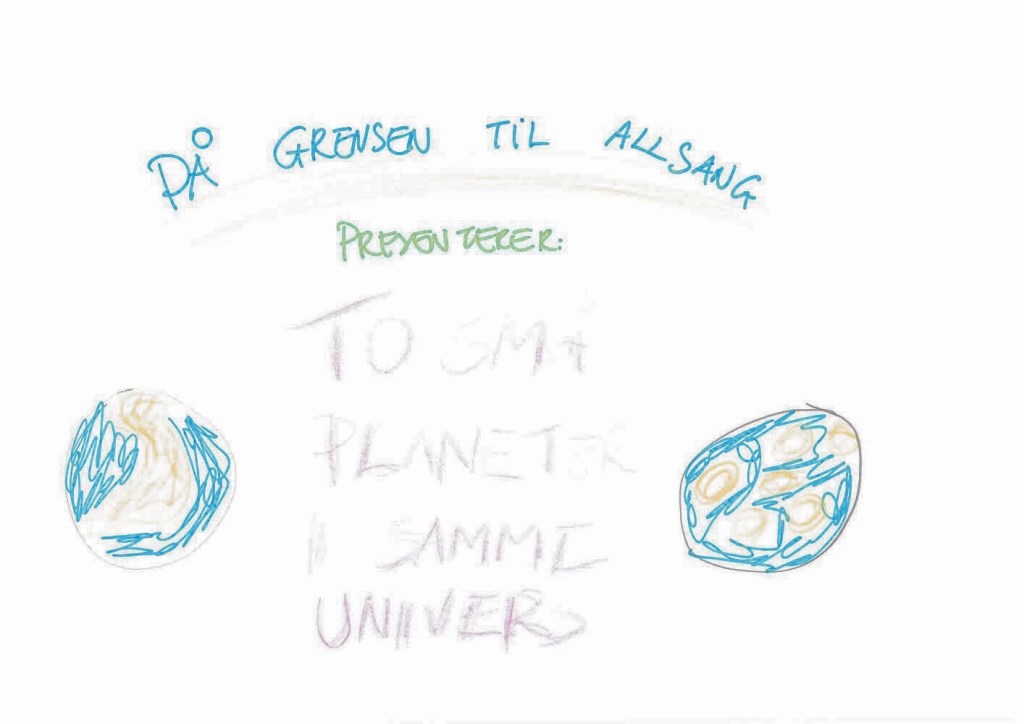 PÅ GRENSEN TIL ALLSANG
PRESENTERER:
TO SMÅ
PLANETER
I SAMME
UNIVERS